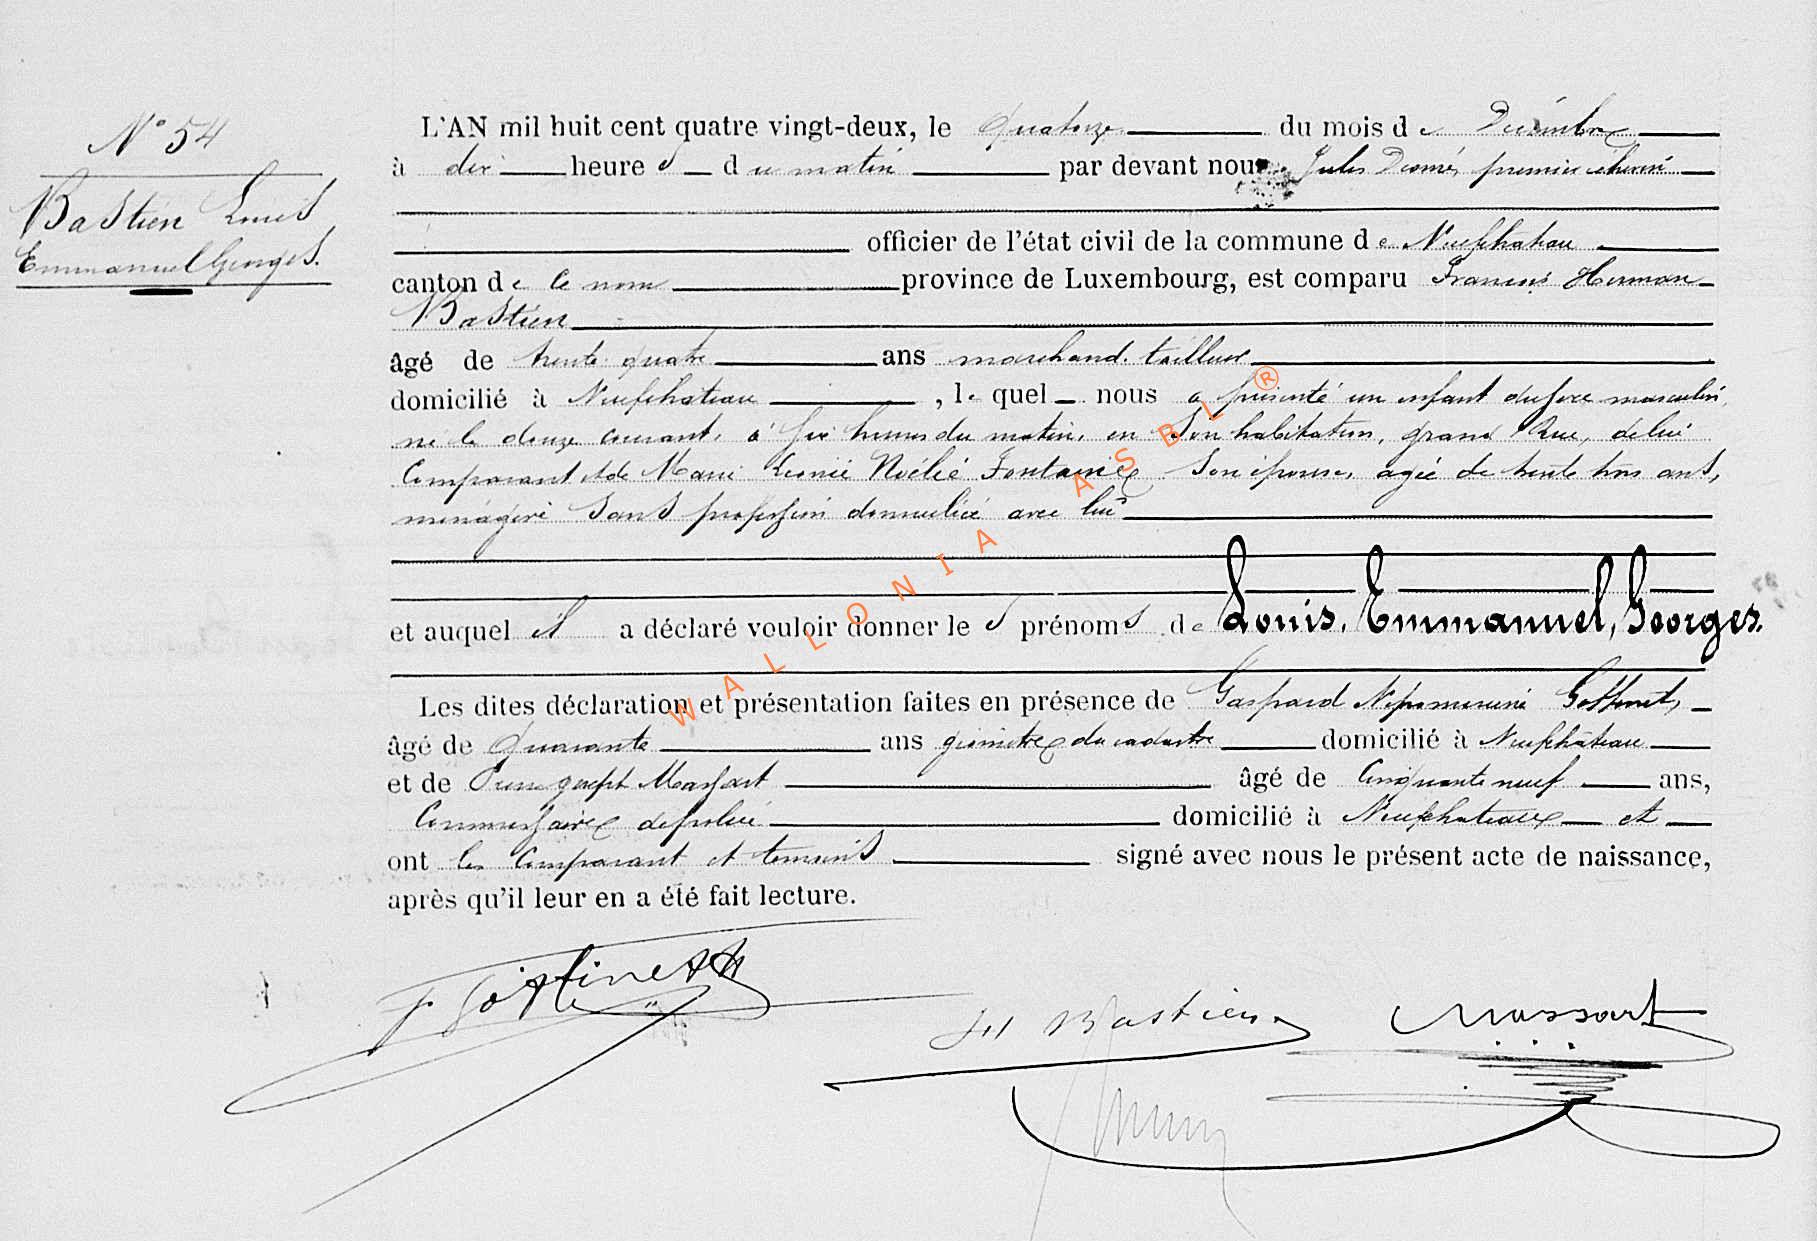 N° 54
Bastien Louis
Emmanuel Georges.
L'AN mil huit cent quatre vingt-deux, le quatorze du mois de Décembre
à dix heures du matin par devant nous Jules premier échevin
officier de l'état civil de la commune de Neufchateau
canton de ce nom province de Luxembourg, est comparu François Herman
Bastien
âgé de trente quatre ans marchand tailleur
domicilié à Neufchateau, lequel nous a présenté un enfant du sexe masculin,
né le douze courant, à six heures du matin, en son habitation, grand Rue, de lui
Comparant et de Marie Léonie Noélie Fontaine son épouse, agée de trente trois ans,
ménagère sans profession domiciliée avec lui
et auquel il a déclaré vouloir donner les prénoms de Louis, Emmanuel, Georges.
Les dites déclaration et présentation faites en présence de Gaspard Népomucène
âgé de quarante ans géomètre du cadastre domicilié à Neufchateau
et de Pierre Joseph Massart âgé de Cinquante neuf ans,
Commissaire de police domicilié à Neufchateau et
ont les Comparant et témoins signé avec nous le présent acte de naissance,
après qu'il leur en a été fait lecture.
Bastien Massart
WALLONIA ASBL ®